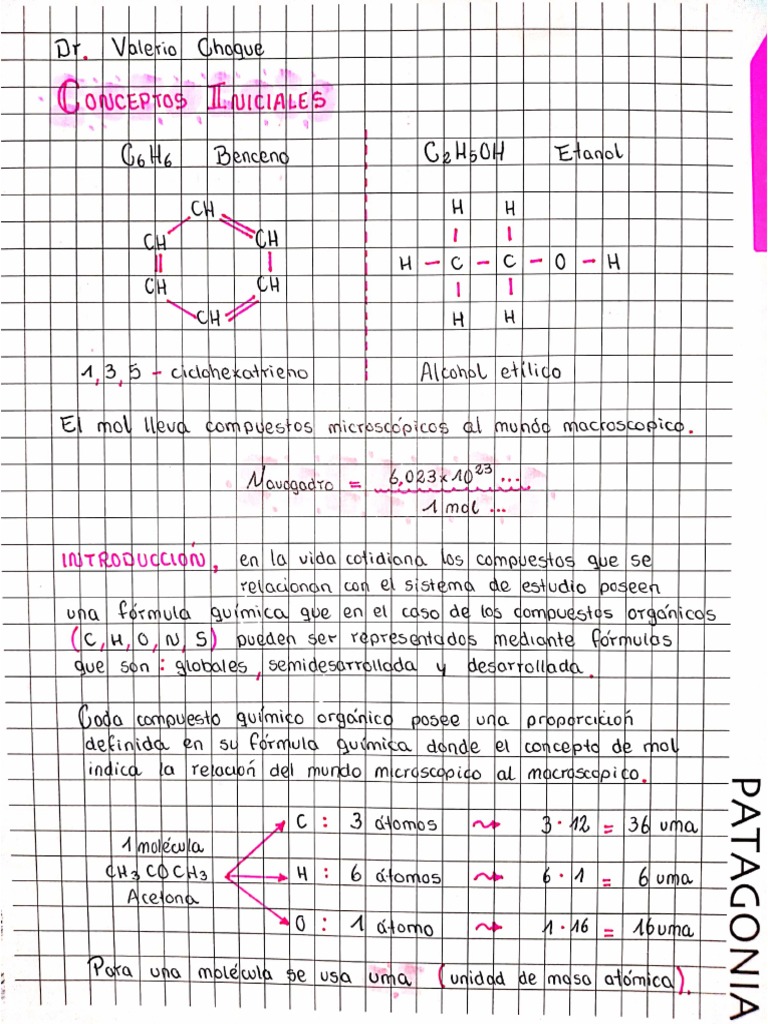 Dr. Valerio Choque
CONCEPTOS INICIALES
C6H6 Benceno
CH
CH CH
CH CH
CH
1,3,5 - ciclohexatrieno
C2H5OH Etanol
H H
H - C - C - O - H
H H
Alcohol etílico
El mol lleva compuestos microscópicos al mundo macroscopico.
Navogadro = 6,023x10²³ ...
1 mol ...
INTRODUCCIÓN, en la vida cotidiana los compuestos que se
relacionan con el sistema de estudio poseen
una fórmula química que en el caso de los compuestos orgánicos
(C, H, O, N, S) pueden ser representados mediante fórmulas
que son: globales, semidesarrollada y desarrollada.
Cada compuesto químico orgánico posee una proporción
definida en su fórmula química donde el concepto de mol
indica la relación del mundo microscopico al macroscopico.
1 molécula
CH3COCH3
Acetona
C : 3 átomos ⇝ 3 · 12 = 36 uma
H : 6 átomos ⇝ 6 · 1 = 6 uma
O : 1 átomo ⇝ 1 · 16 = 16 uma
Para una molécula se usa uma (unidad de masa atómica).
PATAGONIA